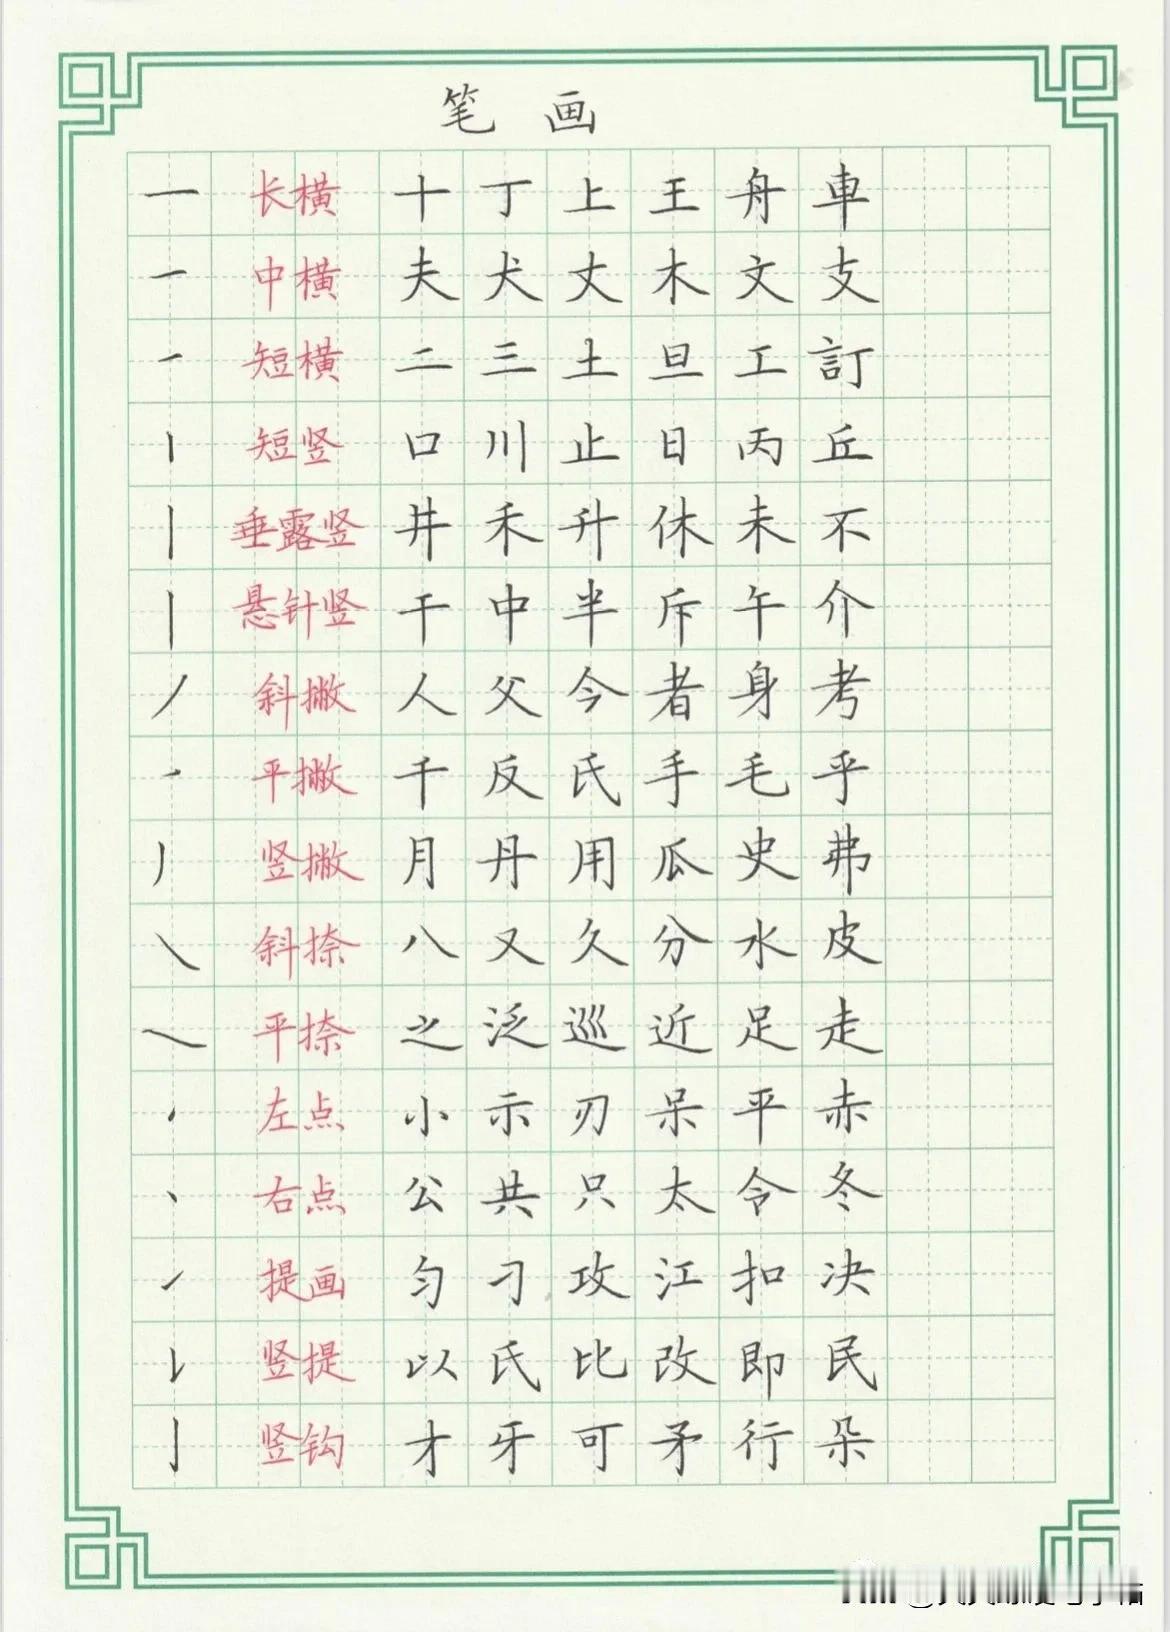 笔画
一 长横 十 丁 上 王 舟 車
一 中横 夫 犬 丈 木 文 支
一 短横 二 三 土 旦 工 訂
丨 短竖 口 川 止 日 丙 丘
丨 垂露竖 井 禾 升 休 未 不
丨 悬针竖 干 中 半 斥 午 介
丿 斜撇 人 父 今 者 身 考
㇒ 平撇 千 反 氏 手 毛 乎
丿 竖撇 月 丹 用 瓜 史 弗
㇏ 斜捺 八 又 久 分 水 皮
㇏ 平捺 之 泛 巡 近 足 走
㇒ 左点 小 示 刃 呆 平 赤
丶 右点 公 共 只 太 令 冬
㇀ 提画 匀 刁 攻 江 扣 决
𠄌 竖提 以 氏 比 改 即 民
亅 竖钩 才 牙 可 矛 行 朵